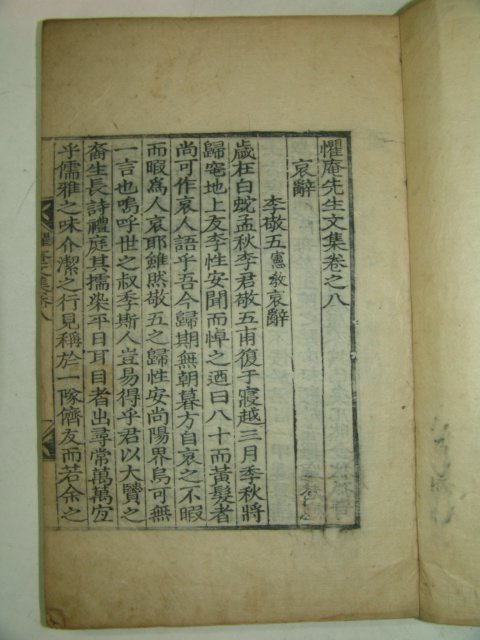 懼庵先生文集卷之八
哀辭
李敬五憲敎哀辭
歲在白蛇孟秋李君敬五甫復于寢越三月季秋將
歸窀地上友李性安聞而悼之迺曰八十而黃髮者
尚可作哀人語乎吾今歸期無朝暮方自哀之不暇
而暇爲人哀耶雖然敬五之歸性安尚陽界烏可無
一言也嗚呼世之叔季斯人豈易得乎君以大賢之
裔生長詩禮庭其擩染平日耳目者出尋常萬萬宜
乎儒雅之味介潔之行見稱於一隊儕友而若余之
文集卷八